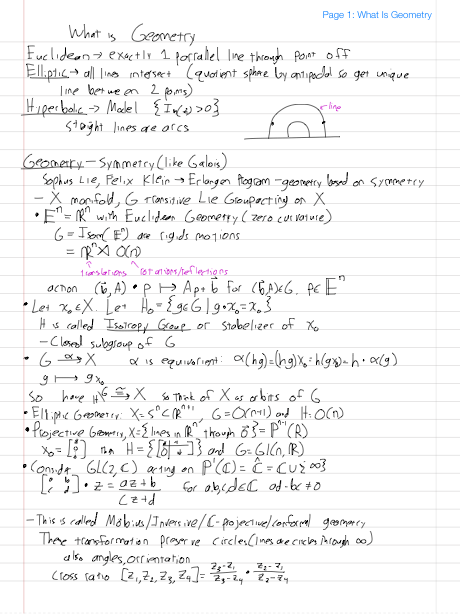 Page 1: What Is Geometry
What is Geometry
Euclidean → exactly 1 parrallel line through point off
Elliptic → all lines intersect (quotient sphere by antipodal so get unique
line between 2 points)
Hyperbolic → Model {Im(z)>0}
straight lines are arcs
line
Geometry – Symmetry (like Galois)
Sophus Lie, Felix Klein → Erlangen Program – geometry based on symmetry
– X manifold, G transitive Lie Group acting on X
• 𝔼ⁿ = ℝⁿ with Euclidean Geometry (zero curvature)
G = Isom(𝔼ⁿ) are rigid motions
= ℝⁿ ⋊ O(n)
translations rotations/reflections
action (b⃗,A) • p ↦ Ap+b⃗ for (b⃗,A)∈G, p∈𝔼ⁿ
• Let x₀∈X. Let H₀ = {g∈G | g•x₀=x₀}
H is called Isotropy Group or stabelizer of x₀
– Closed subgroup of G
• G →α X α is equivariant: α(hg)=(hg)x₀=h(gx₀)=h•α(g)
g ↦ gx₀
So have H\G ≅→ X so think of X as orbits of G
• Elliptic Geometry: X=Sⁿ⊂ℝⁿ⁺¹, G=O(n+1) and H=O(n)
• Projective Geometry, X={lines in ℝⁿ through 0⃗}=ℙⁿ⁻¹(ℝ)
and G=Gl(n,ℝ)
• Consider GL(2,ℂ) acting on ℙ¹(ℂ)=Ĉ=ℂ∪{∞}
[a b; c d] • z = (az+b)/(cz+d) for a,b,c,d∈ℂ ad-bc≠0
– This is called Mobius/Inversive/ℂ-projective/conformal geometry
These transformation preserve circles (lines are circles through ∞)
also angles, orrientation
Cross ratio [z₁,z₂,z₃,z₄]= (z₃-z₁)/(z₃-z₄) • (z₂-z₁)/(z₂-z₄)